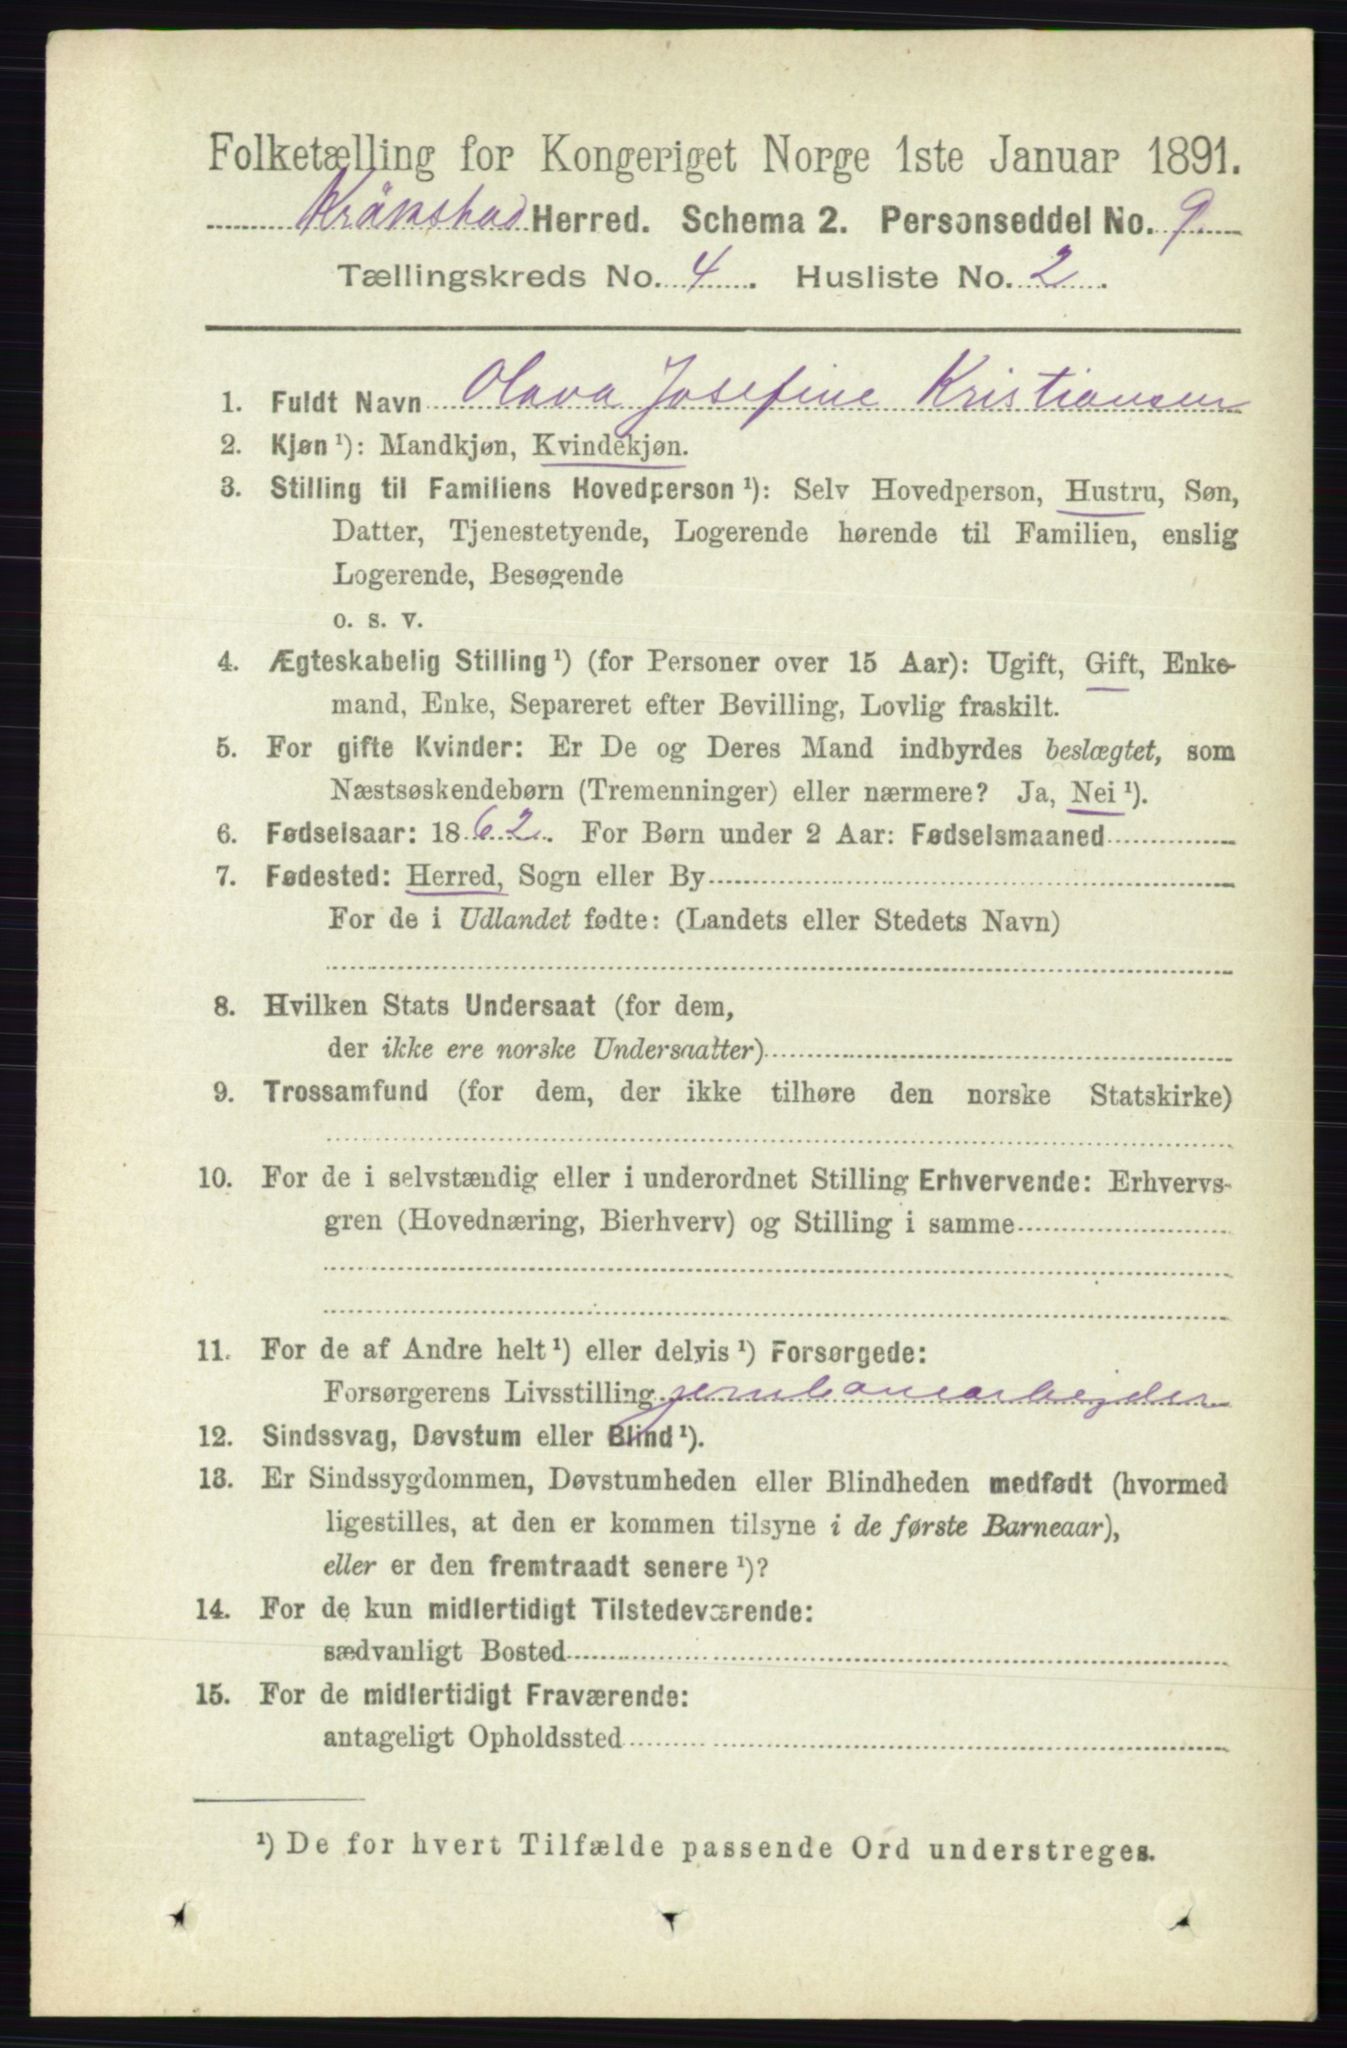 Folketælling for Kongeriget Norge 1ste Januar 1891.
Kråkstad Herred. Schema 2. Personseddel No. 9.
Tællingskreds No. 4. Husliste No. 2.
1. Fuldt Navn Olava Josefine Kristiansen
2. Kjøn ¹): Mandkjøn, Kvindekjøn.
3. Stilling til Familiens Hovedperson ¹): Selv Hovedperson, Hustru, Søn,
Datter, Tjenestetyende, Logerende hørende til Familien, enslig
Logerende, Besøgende
o. s. v.
4. Ægteskabelig Stilling ¹) (for Personer over 15 Aar): Ugift, Gift, Enke-
mand, Enke, Separeret efter Bevilling, Lovlig fraskilt.
5. For gifte Kvinder: Er De og Deres Mand indbyrdes beslægtet, som
Næstsøskendebørn (Tremenninger) eller nærmere? Ja, Nei ¹).
6. Fødselsaar: 1862. For Børn under 2 Aar: Fødselsmaaned
7. Fødested: Herred, Sogn eller By
For de i Udlandet fødte: (Landets eller Stedets Navn)
8. Hvilken Stats Undersaat (for dem,
der ikke ere norske Undersaatter)
9. Trossamfund (for dem, der ikke tilhøre den norske Statskirke)
10. For de i selvstændig eller i underordnet Stilling Erhvervende: Erhvervs-
gren (Hovednæring, Bierhverv) og Stilling i samme
11. For de af Andre helt ¹) eller delvis ¹) Forsørgede:
Forsørgerens Livsstilling jernbanearbejder
12. Sindssvag, Døvstum eller Blind ¹).
13. Er Sindssygdommen, Døvstumheden eller Blindheden medfødt (hvormed
ligestilles, at den er kommen tilsyne i de første Barneaar),
eller er den fremtraadt senere ¹)?
14. For de kun midlertidigt Tilstedeværende:
sædvanligt Bosted
15. For de midlertidigt Fraværende:
antageligt Opholdssted
¹) De for hvert Tilfælde passende Ord understreges.